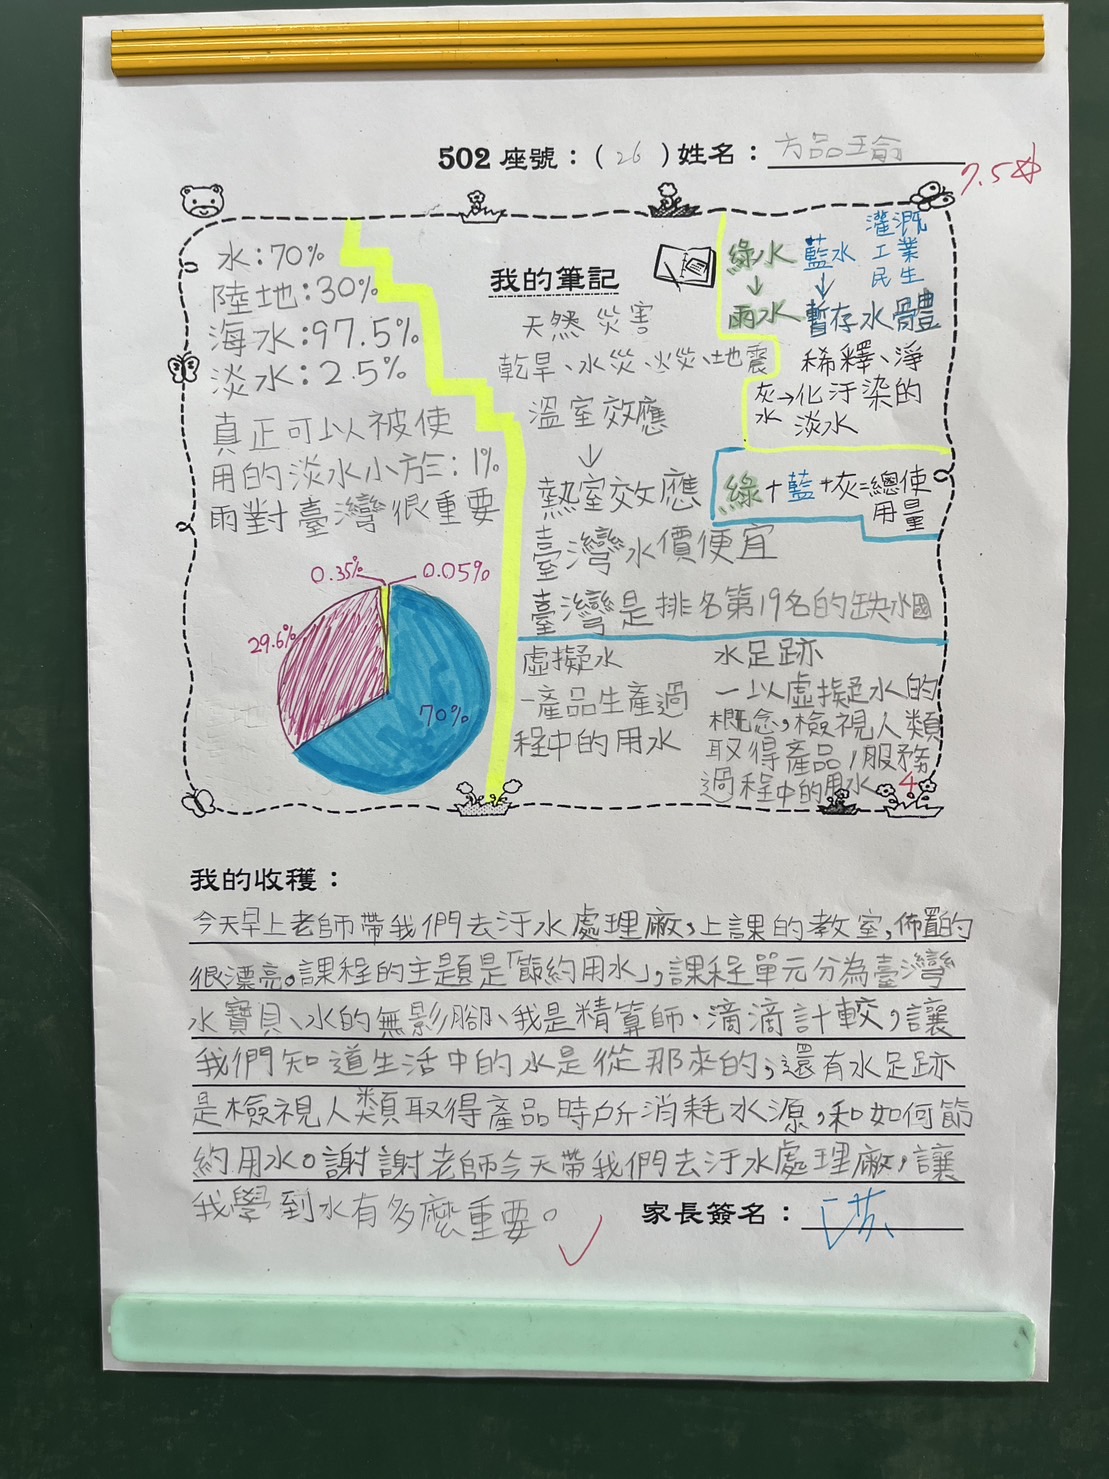 502 座號：( 26 ) 姓名： 方品
7.5
水：70%
陸地：30%
海水：97.5%
淡水：2.5%
真正可以被使
用的淡水小於：1%
雨對臺灣很重要
0.35%
0.05%
29.6%
70%
我的筆記
天然災害
乾旱、水災、火災、地震
溫室效應
↓
熱室效應
臺灣水價便宜
臺灣是排名第19名的缺水國
灌溉
工業
民生
綠水 藍水
↓ ↓
雨水 暫存水體
稀釋、淨
灰水→化汙染的
淡水
綠+藍+灰=總使
用量
虛擬水
-產品生產過
程中的用水
水足跡
一以虛擬水的
概念，檢視人類
取得產品/服務
過程中的用水
4
我的收穫：
今天早上老師帶我們去汙水處理廠，上課的教室，佈置的
很漂亮。課程的主題是「節約用水」，課程單元分為臺灣
水寶貝、水的無影腳、我是精算師．滴滴計較，讓
我們知道生活中的水是從那來的，還有水足跡
是檢視人類取得產品時所消耗水源，和如何節
約用水。謝謝老師今天帶我們去汙水處理廠，讓
我學到水有多麼重要。
家長簽名：